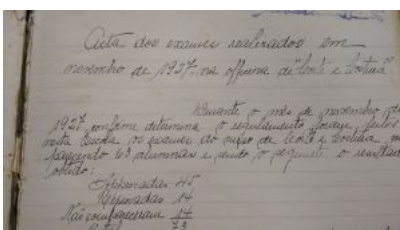 Acta dos exames realizados em
novembro de 1927 na officina de "Corte e Costura"
Durante o mês de novembro de
1927, conforme determina o regulamento foram feitos
nesta Escola os exames do curso de Corte e Costura,
parecendo 63 alumnas e sendo o seguinte o resultado
obtido:
Approvadas: 45
Reprovadas 14
Não compareceram 14
73